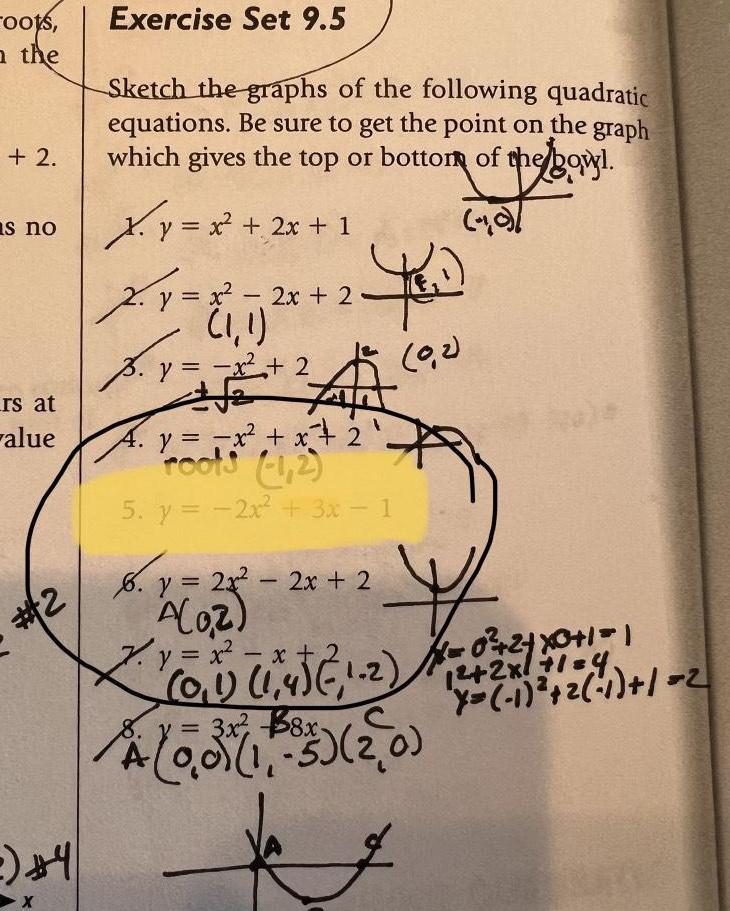 roots,
n the
+ 2.
as no
rs at
value
#2
) #4
x
Exercise Set 9.5
Sketch the graphs of the following quadratic
equations. Be sure to get the point on the graph
which gives the top or bottom of the bowl.
(-1,0)
1. y = x² + 2x + 1
2. y = x² − 2x + 2
(1,1)
3. y = −x² + 2
(0,2)
±√2
4. y = −x² + x + 2
roots (-1,2)
5. y = −2x² + 3x − 1
6. y = 2x² − 2x + 2
A(0,2)
7. y = x² − x + 2
(0,1) (1,4)
1²+2x1+1=4
y=(-1)²+2(-1)+1=2
8. y = 3x² − 8x
B C
A(0,0)(1,-5)(2,0)
A